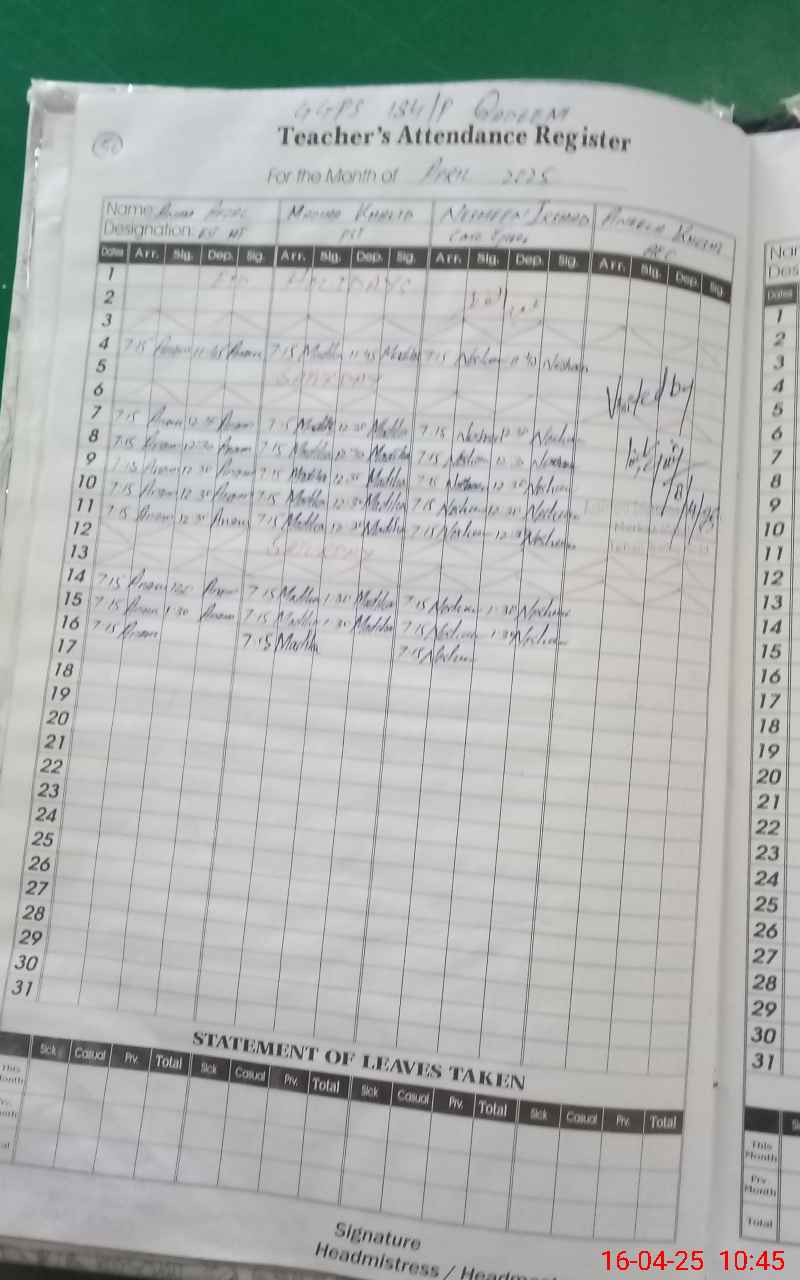 GGPS 134/P QADEEM
Teacher's Attendance Register
For the Month of APRIL 2025
Name: Madiha Khalid Nosheen Irshad
Designation: PST Care Giver AEC
Dates Arr. Sig. Dep. Sig. Arr. Sig. Dep. Sig. Arr. Sig. Dep. Sig. Arr. Sig. Dep. Sig.
1 EID HOLIDAYS
2
3
4 7:15 Anam 11:45 Anam 7:15 Madiha 11:45 Madiha 7:15 Nosheen Nosheen
5 SATURDAY
6
7 7:15 Anam 12:30 Anam 7:15 Madiha 12:30 Madiha 7:15 Nosheen 12:30 Nosheen
8 7:15 Anam 12:30 Anam 7:15 Madiha 12:30 Madiha 7:15 Nosheen 12:30 Nosheen
9 7:15 Anam 12:30 Anam 7:15 Madiha 12:30 Madiha 7:15 Nosheen 12:30 Nosheen
10 7:15 Anam 12:30 Anam 7:15 Madiha 12:30 Madiha 7:15 Nosheen 12:30 Nosheen
11 7:15 Anam 12:30 Anam 7:15 Madiha 12:30 Madiha 7:15 Nosheen 12:30 Nosheen
12 SATURDAY
13
14 7:15 Anam Anam 7:15 Madiha 1:30 Madiha 7:15 Nosheen 1:30 Nosheen
15 7:15 Anam 1:30 Anam 7:15 Madiha 1:30 Madiha 7:15 Nosheen 1:30 Nosheen
16 7:15 Anam 7:15 Madiha 7:15 Nosheen
17
18
19
20
21
22
23
24
25
26
27
28
29
30
31
Visited by
8/4/25
STATEMENT OF LEAVES TAKEN
Sick Casual Prv. Total Sick Casual Prv. Total Sick Casual Prv. Total Sick Casual Prv. Total
This Month
Signature
Headmistress /
Dates
1
2
3
4
5
6
7
8
9
10
11
12
13
14
15
16
17
18
19
20
21
22
23
24
25
26
27
28
29
30
31
This Month
Prv. Month
Total
16-04-25 10:45